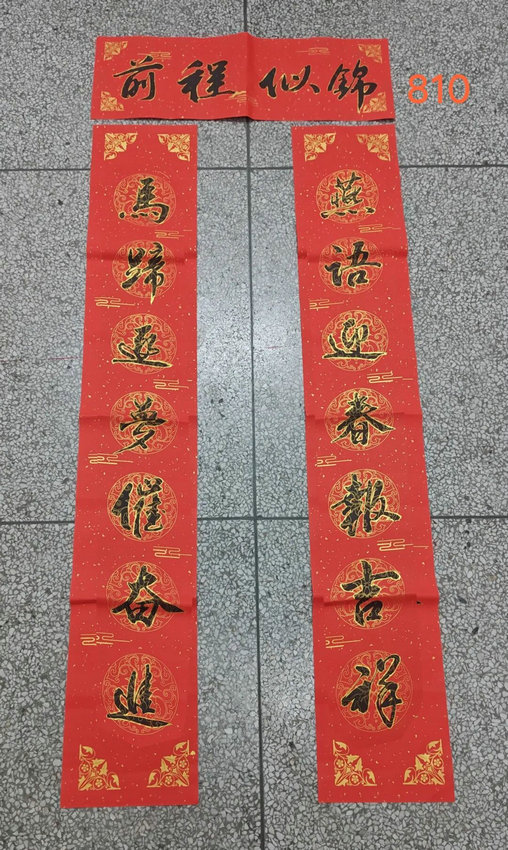 前程似錦
810
馬蹄逐夢催奋進
燕語迎春報吉祥